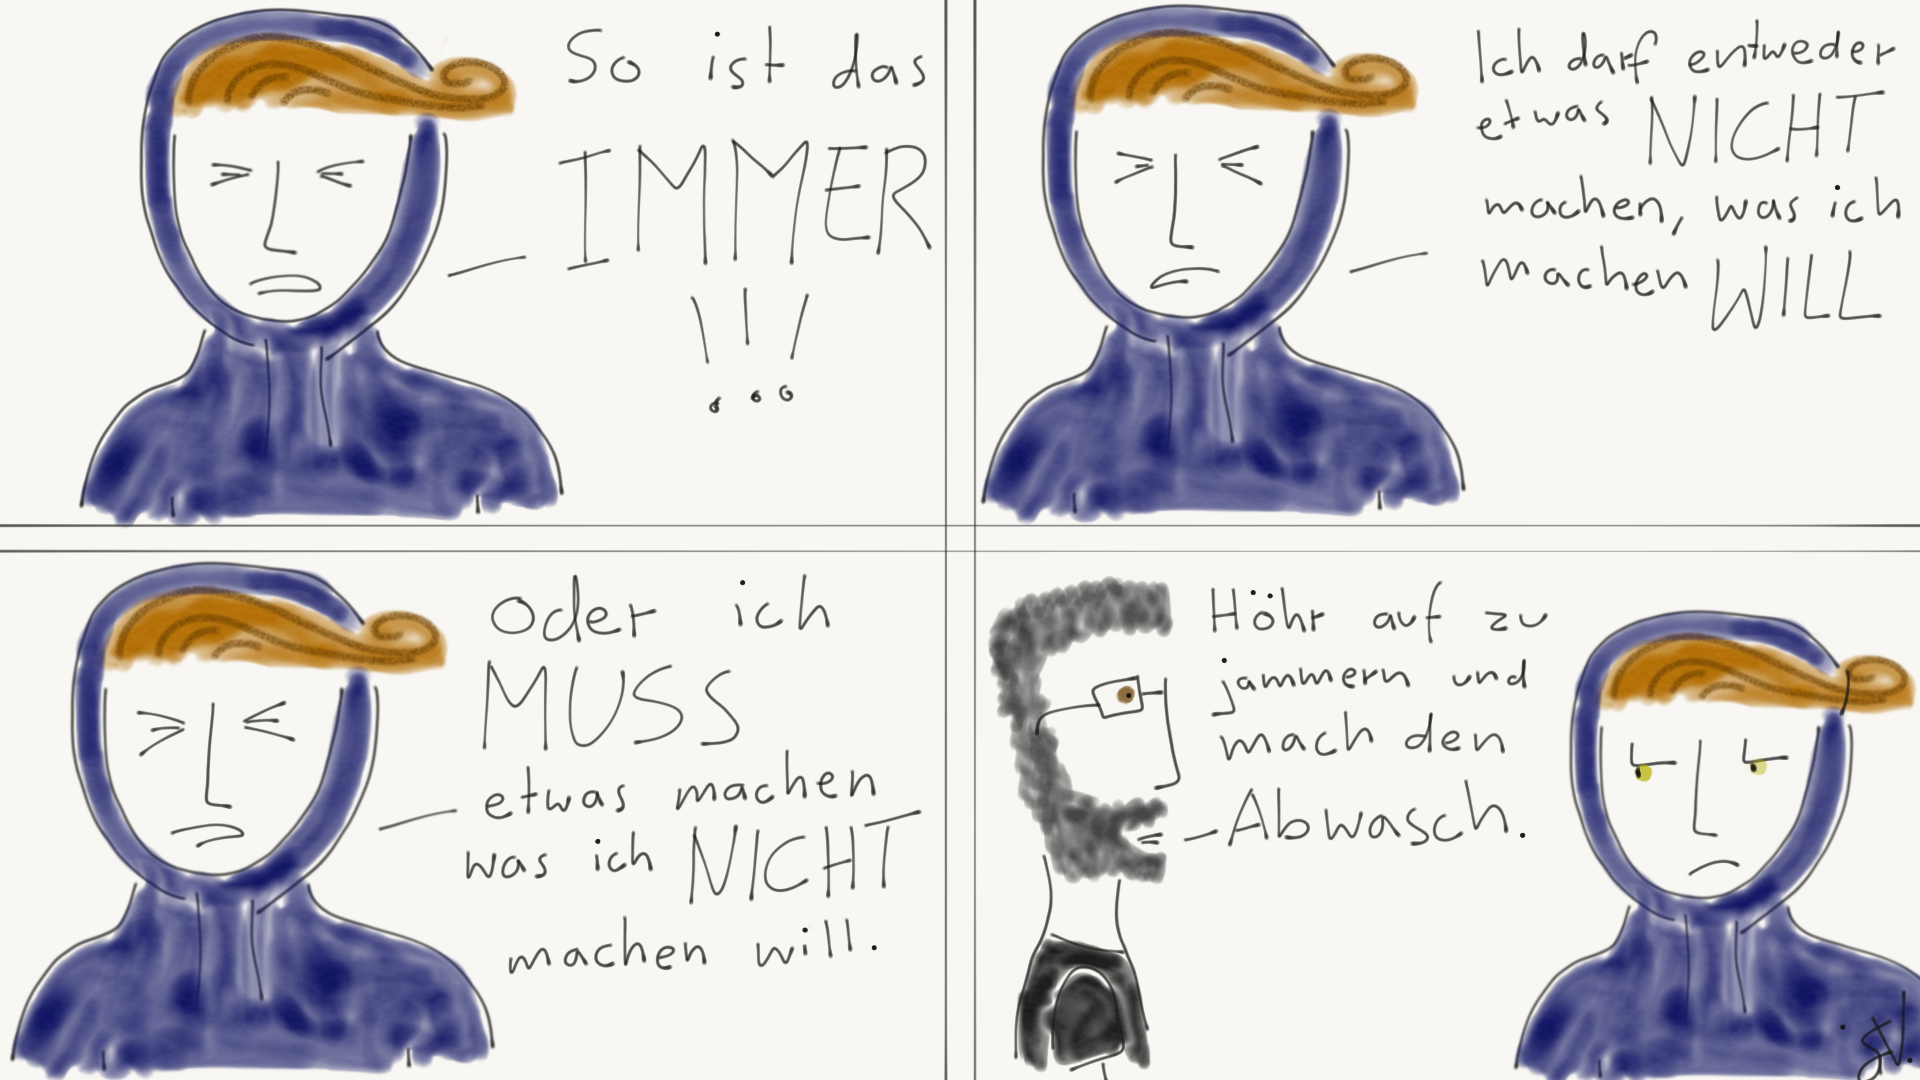 So ist das
IMMER
!!!
Ich darf entweder
etwas NICHT
machen, was ich
machen WILL
Oder ich
MUSS
etwas machen
was ich NICHT
machen will.
Höhr auf zu
jammern und
mach den
Abwasch.